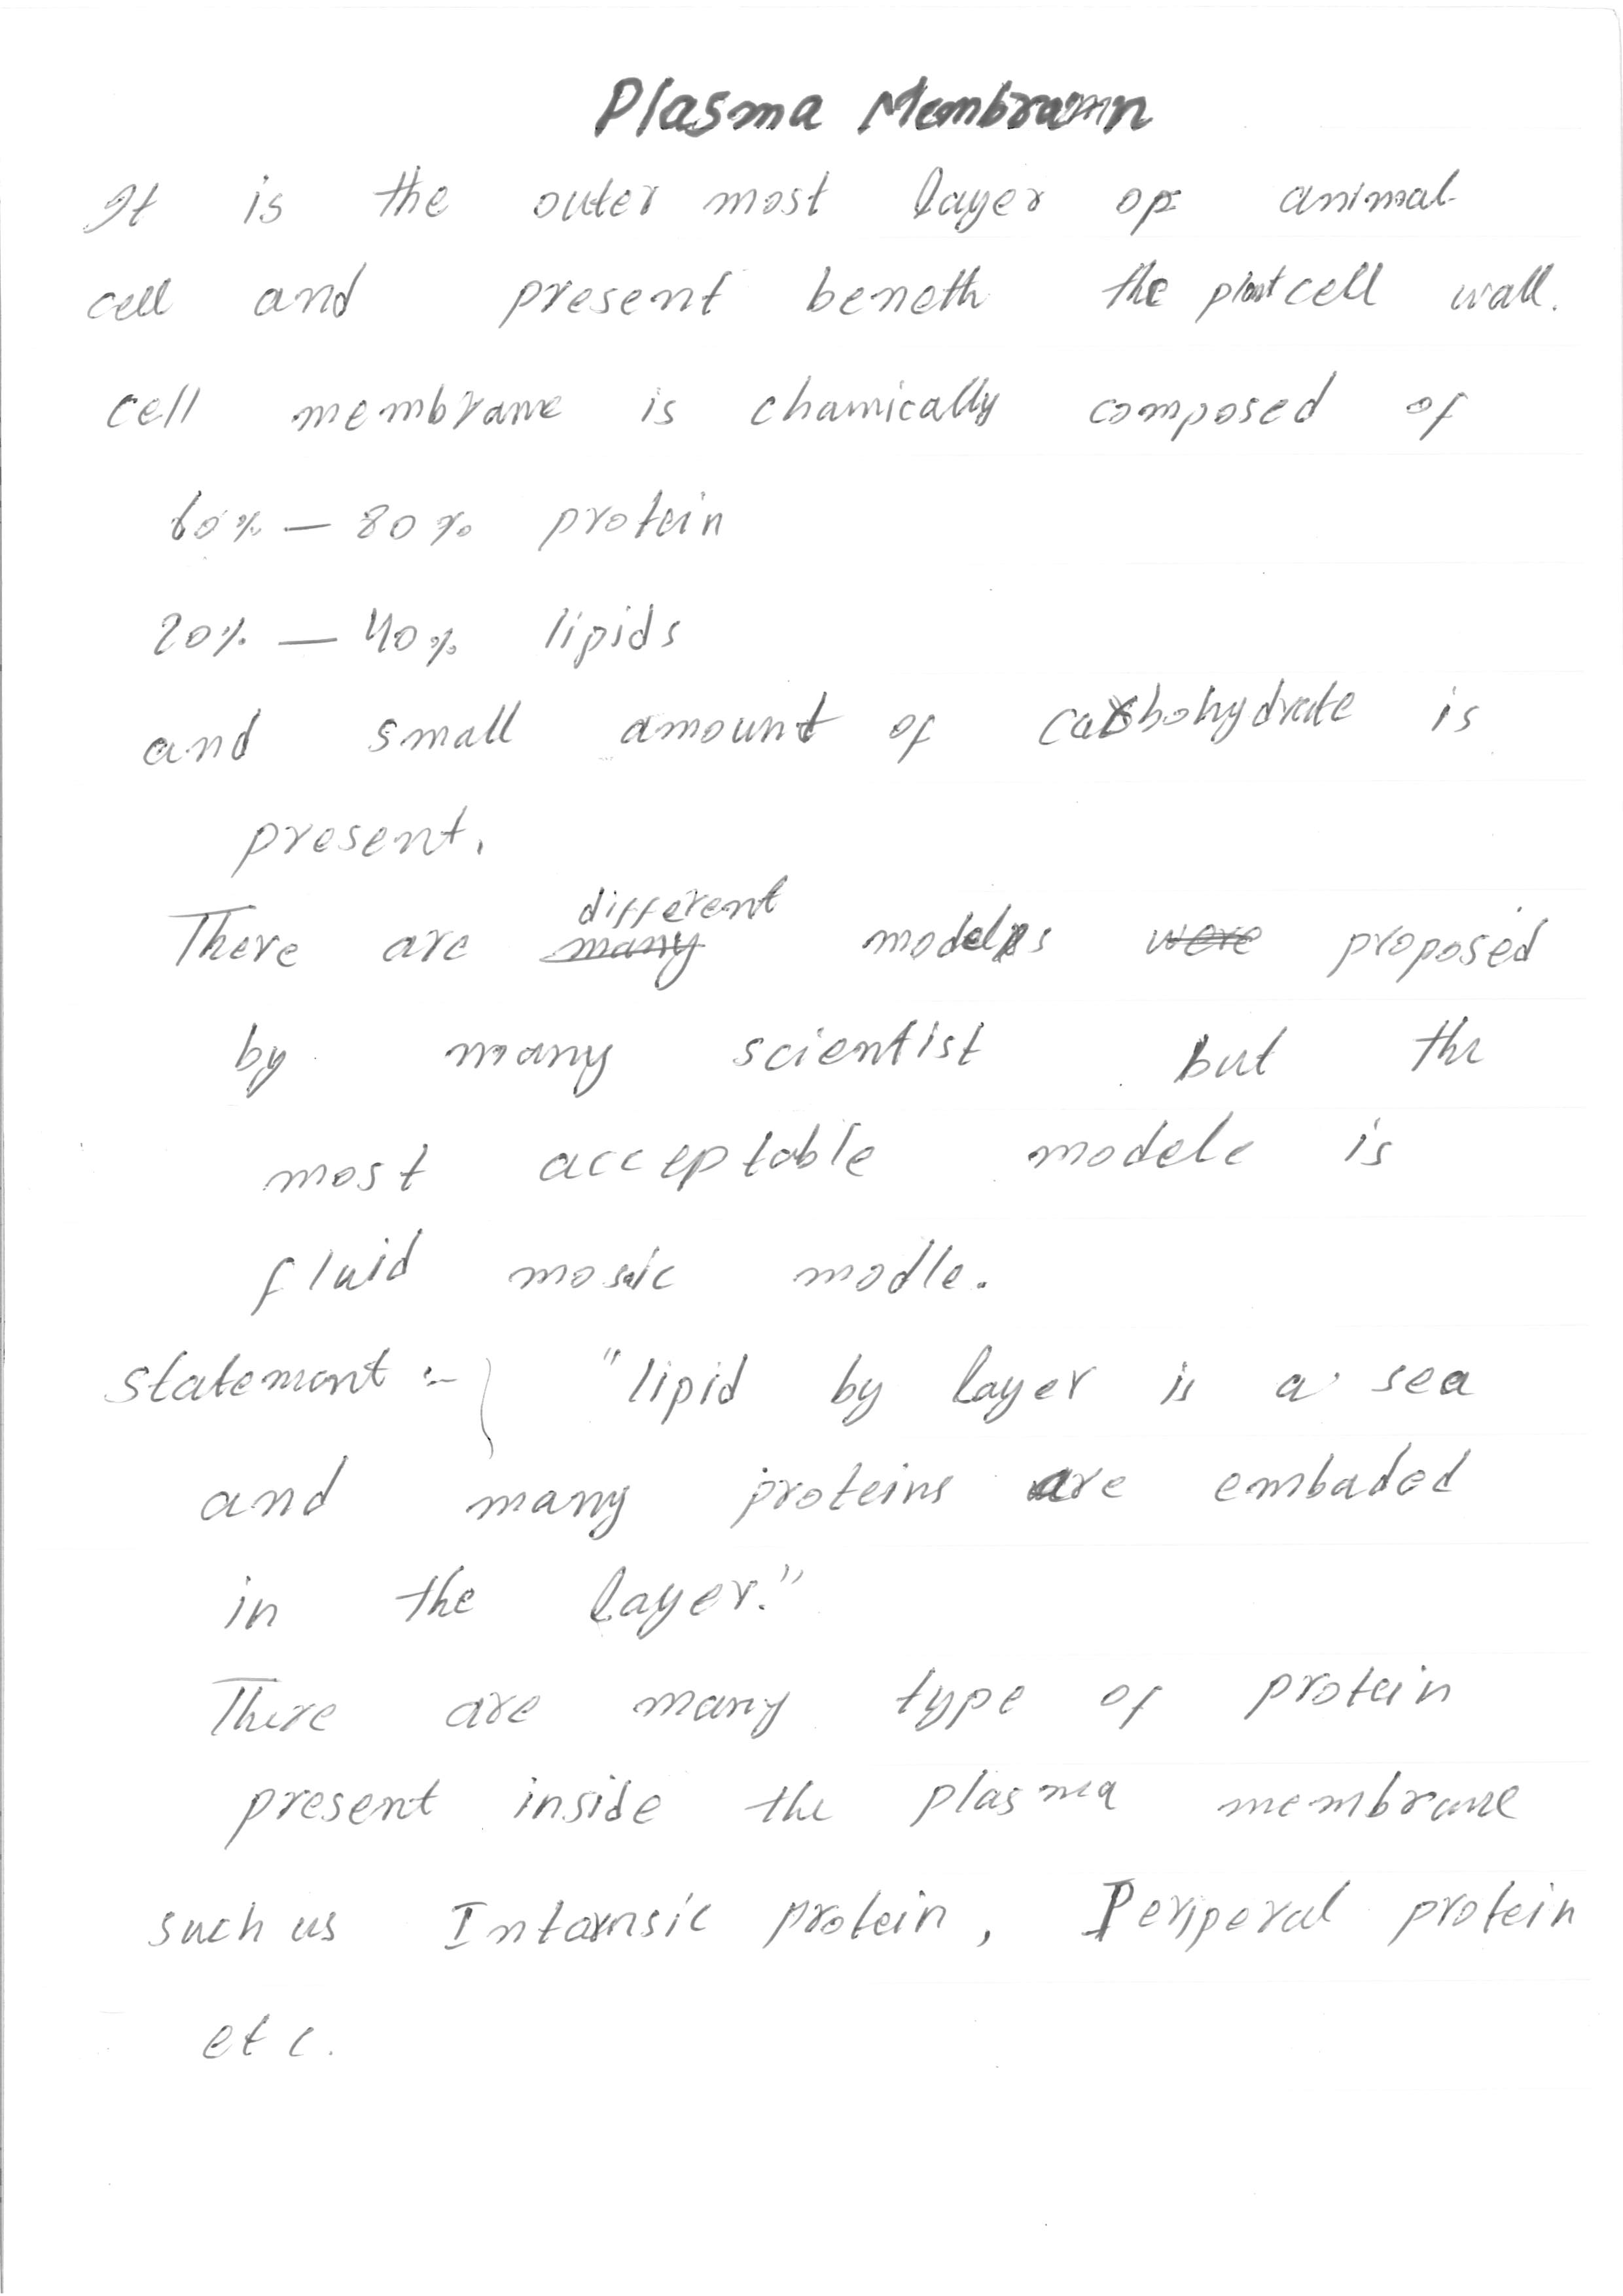 Plasma Membramn
It is the outer most layer of animal
cell and present beneth the plant cell wall.
cell membrane is chamically composed of
60% — 80% protein
20% — 40% lipids
and small amount of carbohydrate is
present.
different
There are many models were proposed
by many scientist but the
most acceptable modele is
fluid mosaic modle.
statement :- "lipid by layer is a sea
and many proteins are embaded
in the layer."
There are many type of protein
present inside the plasma membrane
such us Intarnsic protein, Periperal protein
etc.